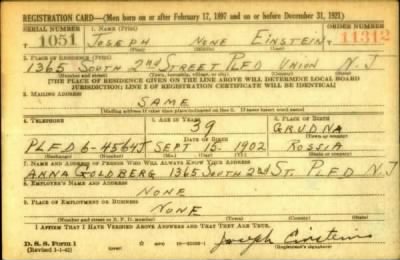 REGISTRATION CARD—(Men born on or after February 17, 1897 and on or before December 31, 1921)
SERIAL NUMBER 1. NAME (Print) ORDER NUMBER
T 1051 JOSEPH NONE EINSTEIN 11312
(First) (Middle) (Last)
2. PLACE OF RESIDENCE (Print)
1365 SOUTH 2nd STREET PLFD UNION N.J
(Number and street) (Town, township, village, or city) (County) (State)
[THE PLACE OF RESIDENCE GIVEN ON THE LINE ABOVE WILL DETERMINE LOCAL BOARD
JURISDICTION; LINE 2 OF REGISTRATION CERTIFICATE WILL BE IDENTICAL]
3. MAILING ADDRESS
SAME
[Mailing address if other than place indicated on line 2. If same insert word same]
4. TELEPHONE 5. AGE IN YEARS 6. PLACE OF BIRTH
39 GRUDNA
DATE OF BIRTH (Town or county)
PLFD 6-4564J SEPT 15 1902 ROSSIA
(Exchange) (Number) (Mo.) (Day) (Yr.) (State or country)
7. NAME AND ADDRESS OF PERSON WHO WILL ALWAYS KNOW YOUR ADDRESS
ANNA GOLDBERG 1365 SOUTH 2nd ST. PLFD N.J
8. EMPLOYER'S NAME AND ADDRESS
NONE
9. PLACE OF EMPLOYMENT OR BUSINESS
NONE
(Number and street or R. F. D. number) (Town) (County) (State)
I AFFIRM THAT I HAVE VERIFIED ABOVE ANSWERS AND THAT THEY ARE TRUE.
D. S. S. Form 1
(Revised 1-1-42) (over) Joseph Einstein
(Registrant's signature)